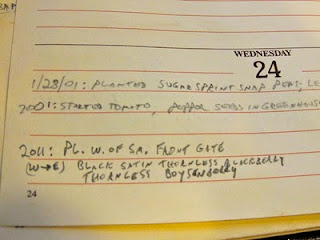 WEDNESDAY
24
1/28/01: PLANTED SUGAR SPRINT SNAP PEAS, LE
2001: STARTED TOMATO, PEPPER SEEDS IN GREENHOUSE
2011: PL. W. OF SA. FRONT GATE
(W→E) BLACK SATIN THORNLESS BLACKBERRY
THORNLESS BOYSENBERRY
24